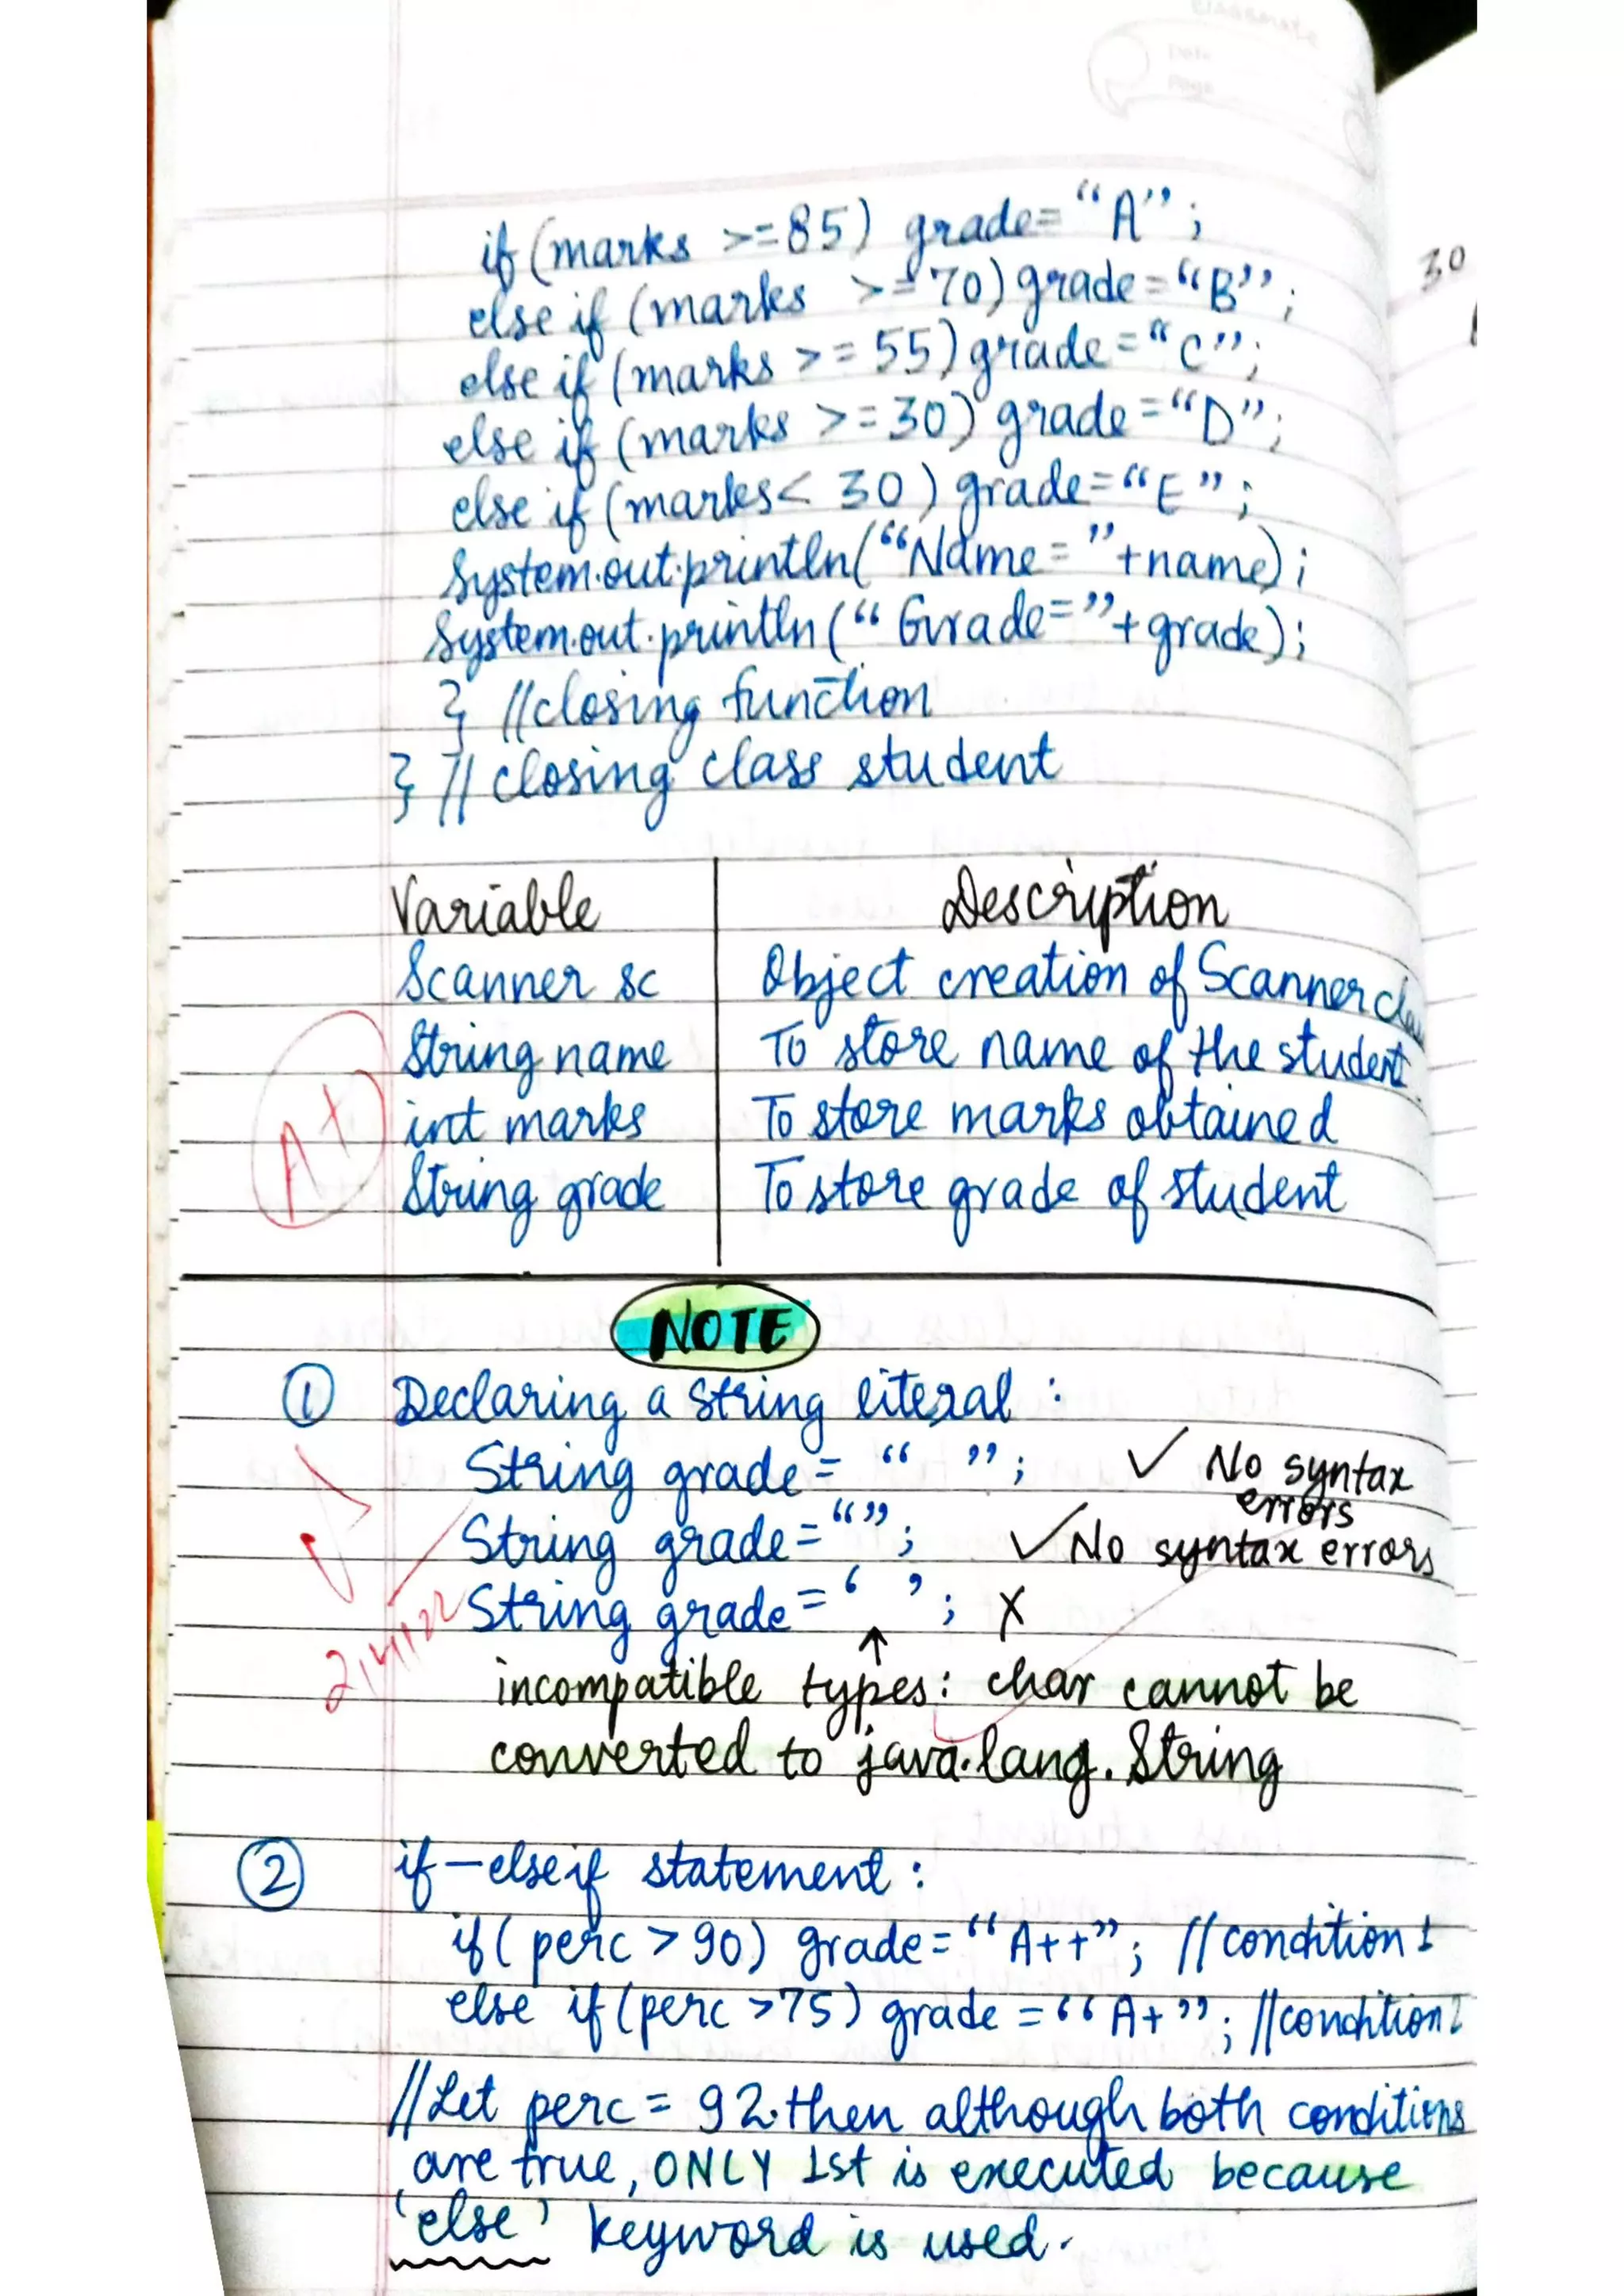 classmate
Date
Page
if (marks >=85) grade= “A” ;
else if (marks >=70) grade = “B” ;
else if (marks >= 55) grade = “C” ;
else if (marks >=30) grade = “D” ;
else if (marks< 30 ) grade= “E” ;
System.out.println(“Name= ”+name) ;
System.out.println (“ Grade= ”+ grade) ;
} //closing function
} // closing class student
Variable Description
Scanner sc Object creation of Scanner class
String name To store name of the student
int marks To store marks obtained
String grade To store grade of student
A+
30
NOTE
① Declaring a string literal :
String grade= “ ” ; ✓ No syntax errors
String grade= “” ; ✓ No syntax errors
String grade= ‘ ’ ; X
↑
incompatible types: char cannot be
converted to java.lang.String
② if – else if statement :
if ( perc > 90) grade= “A++” ; // condition 1
else if (perc >75) grade = “A+” ; //condition 2
//Let perc = 92.then although both conditions
are true, ONLY 1st is executed because
‘else’ keyword is used.